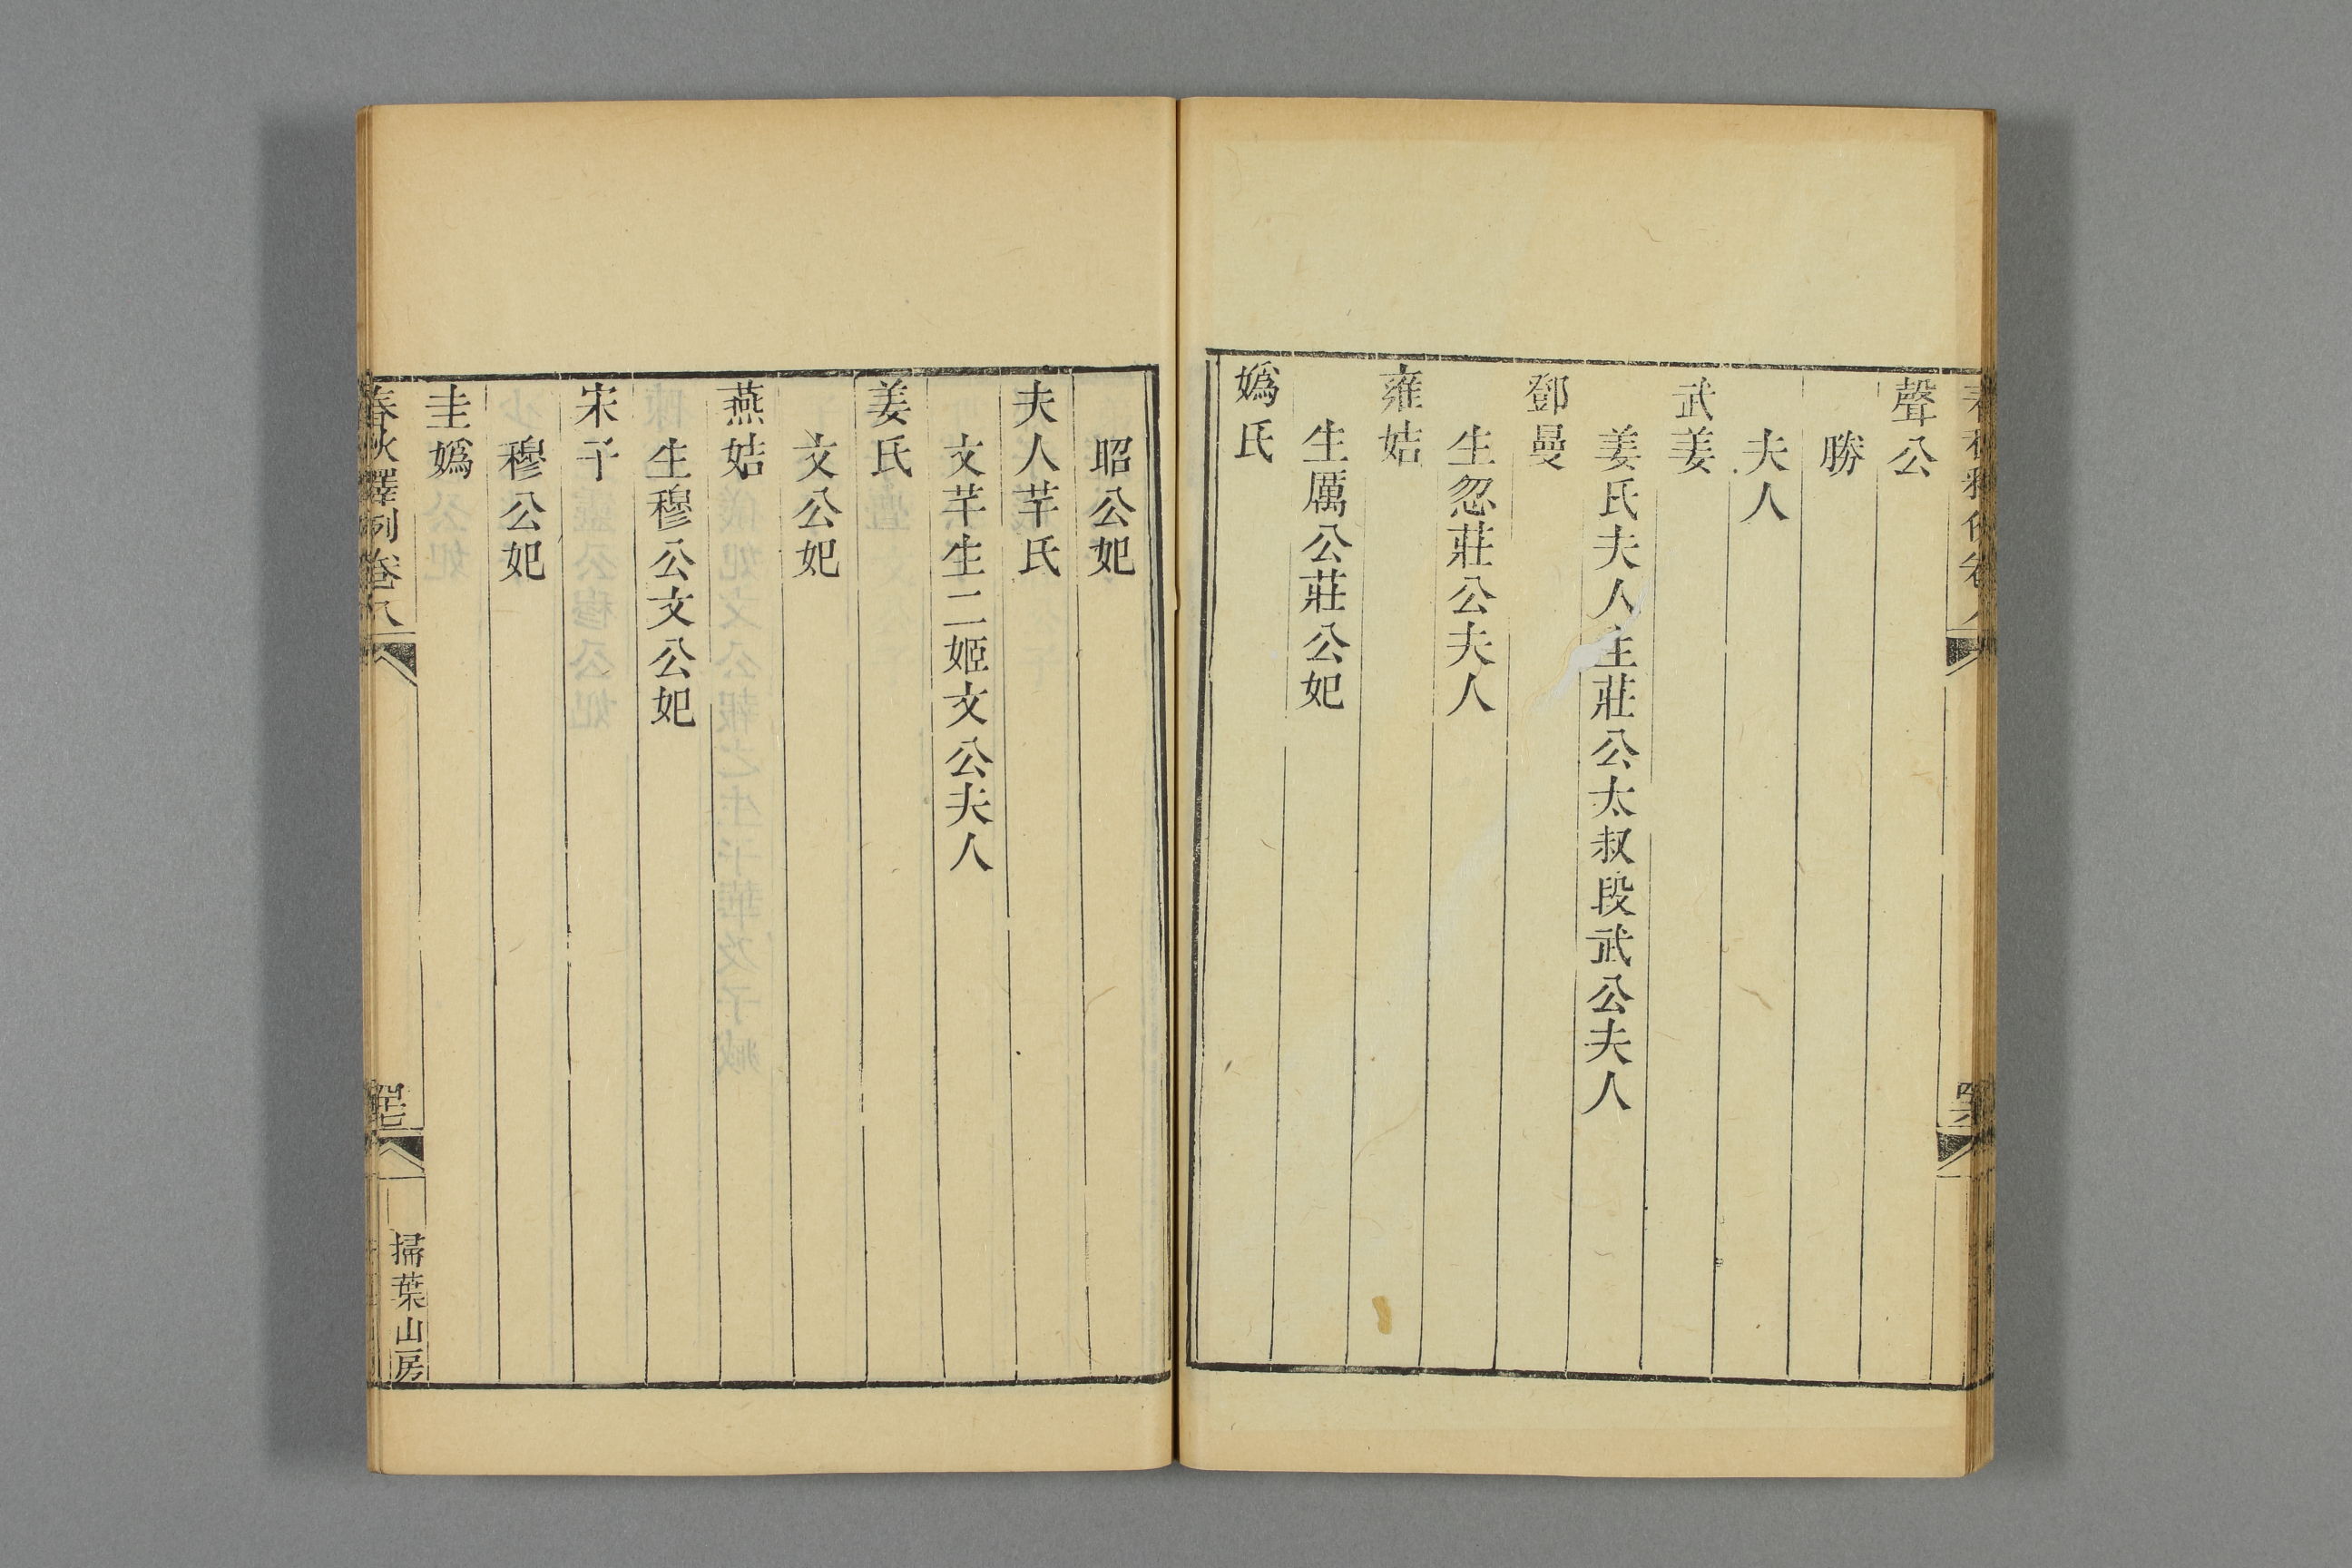 聲公
勝
夫人
武姜
姜氏夫人生莊公太叔段武公夫人
鄧曼
生忽莊公夫人
雍姞
生厲公莊公妃
媯氏
昭公妃
夫人芊氏
文芊生二姬文公夫人
姜氏
文公妃
燕姞
生穆公文公妃
宋子
穆公妃
圭媯
春秋釋例卷八
掃葉山房